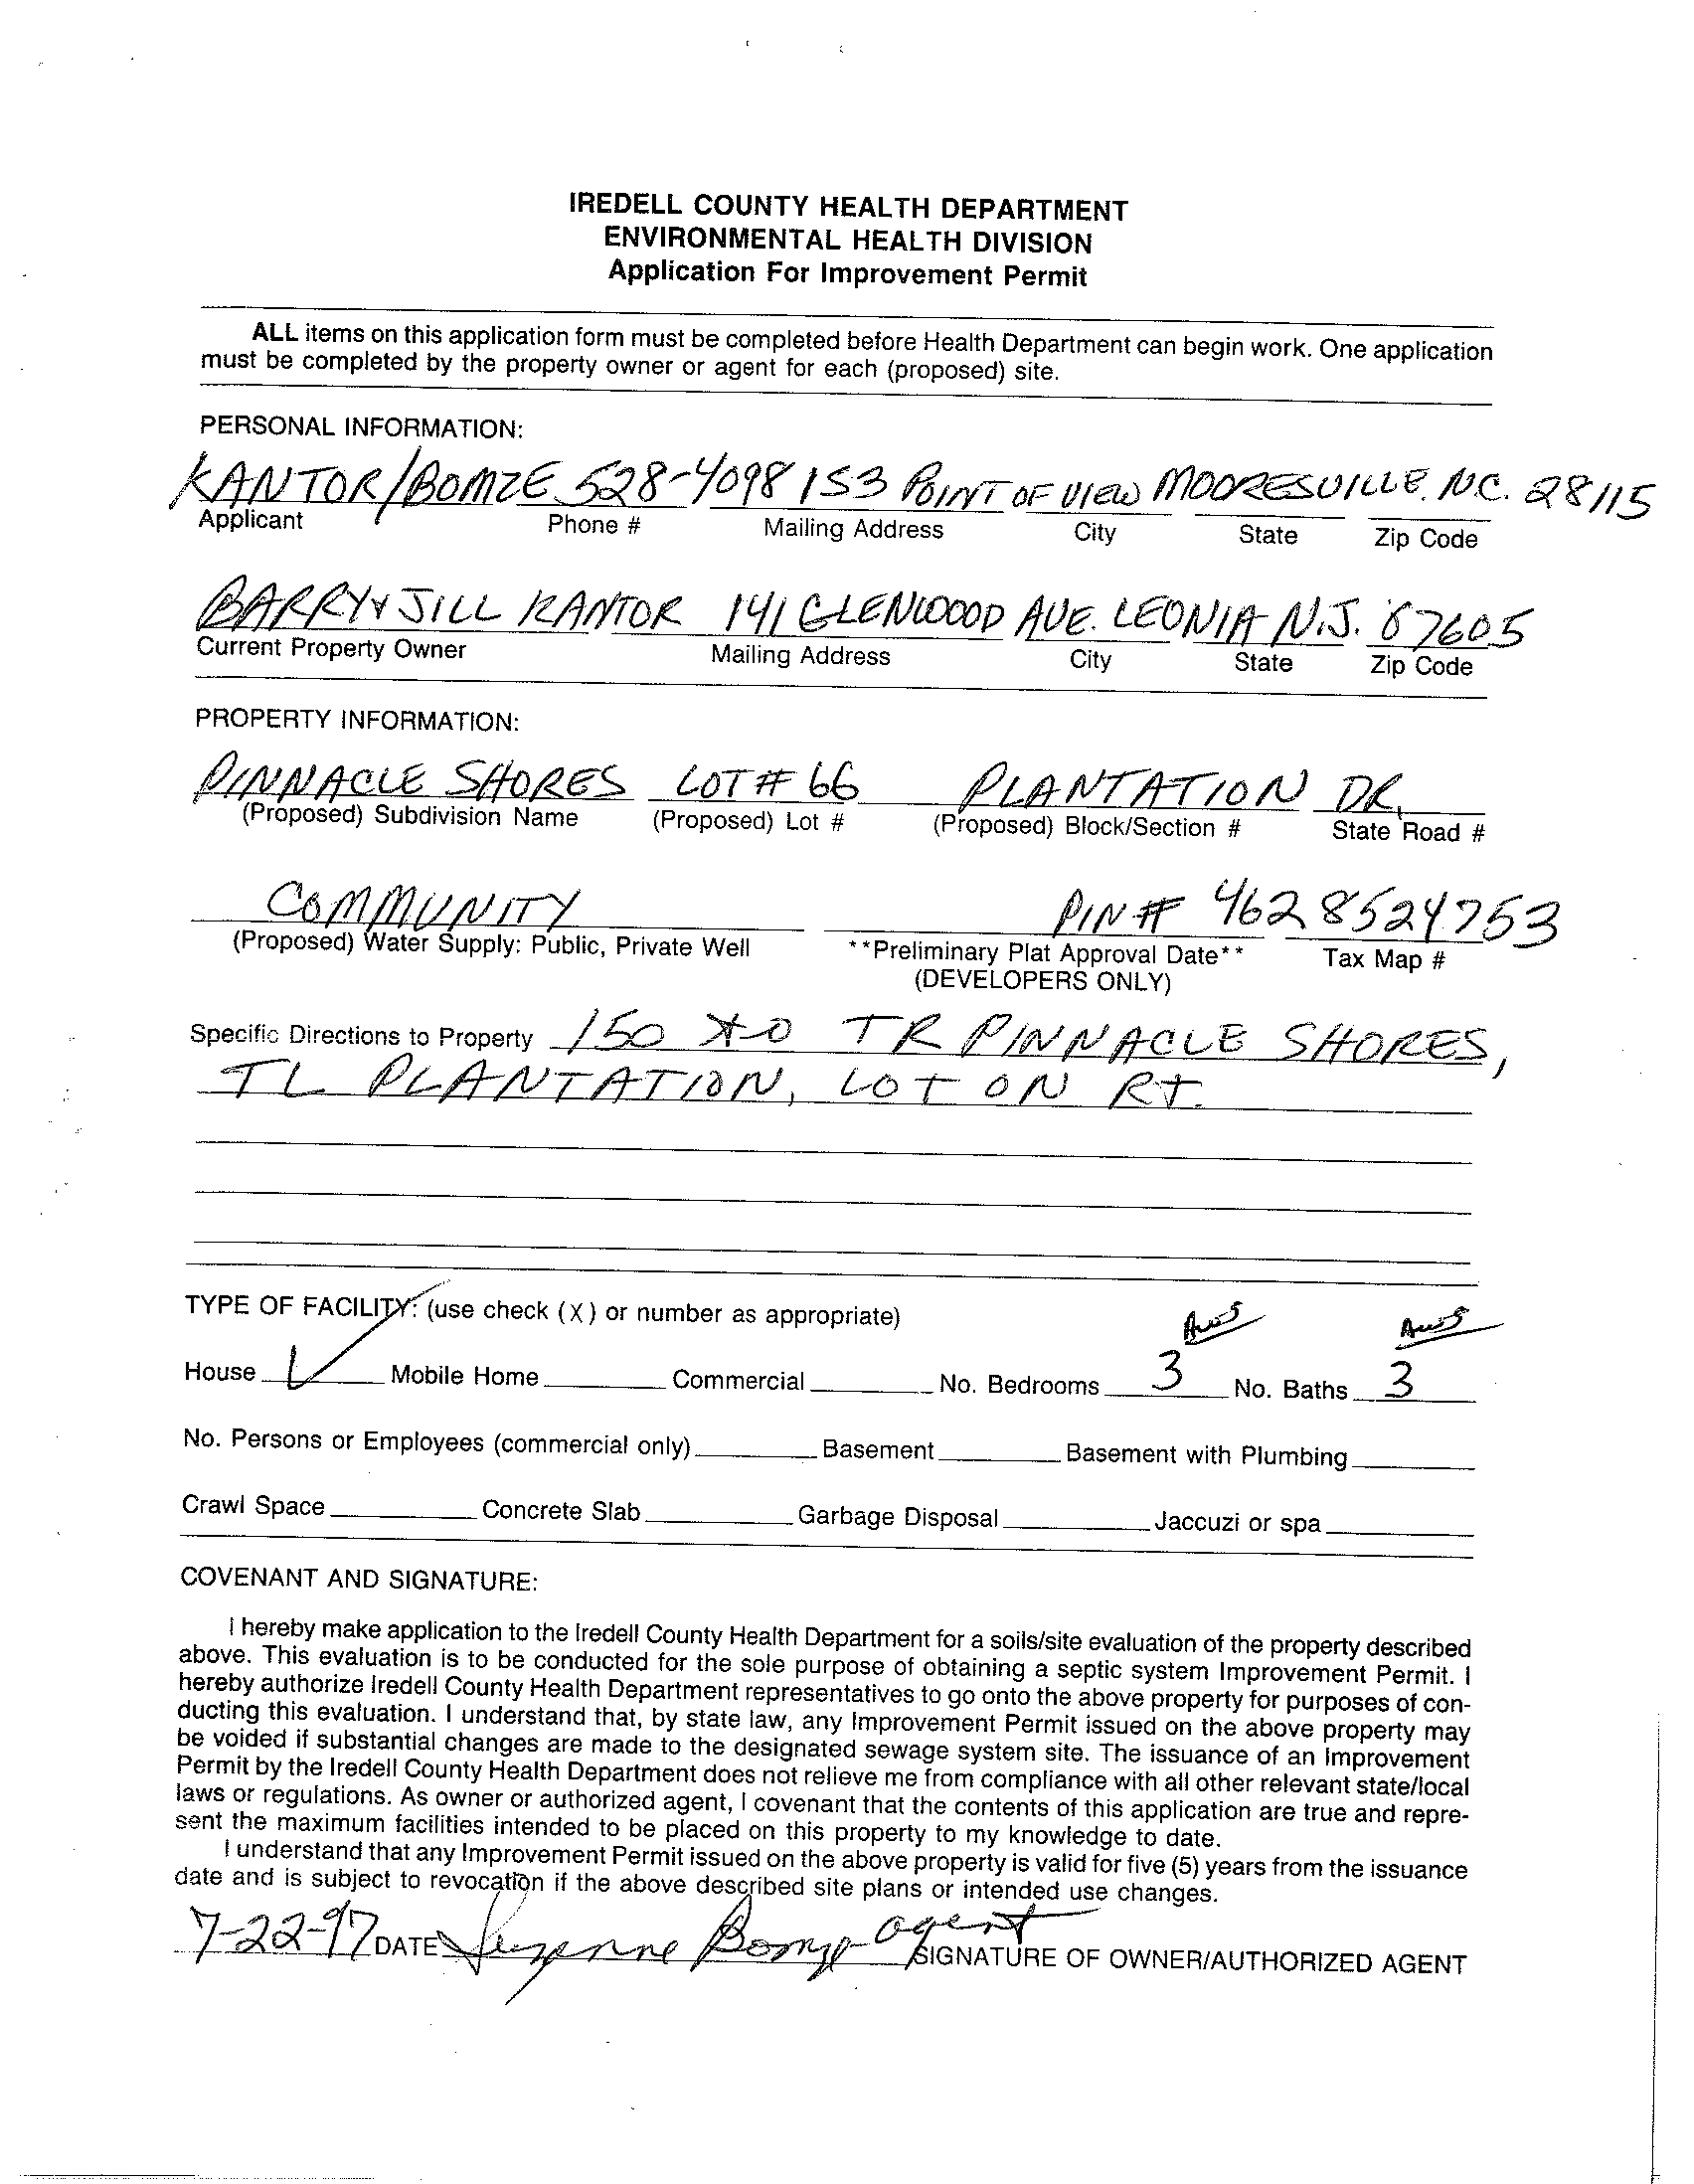 IREDELL COUNTY HEALTH DEPARTMENT
ENVIRONMENTAL HEALTH DIVISION
Application For Improvement Permit
ALL items on this application form must be completed before Health Department can begin work. One application
must be completed by the property owner or agent for each (proposed) site.
PERSONAL INFORMATION:
KANTOR/BOMZE 528-4098 153 POINT OF VIEW MOORESVILLE, N.C. 28115
Applicant Phone # Mailing Address City State Zip Code
BARRY & JILL KANTOR 141 GLENWOOD AVE. LEONIA N.J. 07605
Current Property Owner Mailing Address City State Zip Code
PROPERTY INFORMATION:
PINNACLE SHORES LOT # 66 PLANTATION DR.
(Proposed) Subdivision Name (Proposed) Lot # (Proposed) Block/Section # State Road #
COMMUNITY PIN # 4628524753
(Proposed) Water Supply: Public, Private Well **Preliminary Plat Approval Date** Tax Map #
(DEVELOPERS ONLY)
Specific Directions to Property 150 to TR PINNACLE SHORES,
TL PLANTATION, LOT ON RT.
TYPE OF FACILITY: (use check (X) or number as appropriate)
House Mobile Home Commercial No. Bedrooms 3 No. Baths 3
No. Persons or Employees (commercial only) Basement Basement with Plumbing
Crawl Space Concrete Slab Garbage Disposal Jaccuzi or spa
COVENANT AND SIGNATURE:
I hereby make application to the Iredell County Health Department for a soils/site evaluation of the property described
above. This evaluation is to be conducted for the sole purpose of obtaining a septic system Improvement Permit. I
hereby authorize Iredell County Health Department representatives to go onto the above property for purposes of con-
ducting this evaluation. I understand that, by state law, any Improvement Permit issued on the above property may
be voided if substantial changes are made to the designated sewage system site. The issuance of an Improvement
Permit by the Iredell County Health Department does not relieve me from compliance with all other relevant state/local
laws or regulations. As owner or authorized agent, I covenant that the contents of this application are true and repre-
sent the maximum facilities intended to be placed on this property to my knowledge to date.
I understand that any Improvement Permit issued on the above property is valid for five (5) years from the issuance
date and is subject to revocation if the above described site plans or intended use changes.
7-22-97 DATE Suzanne Bomze agent SIGNATURE OF OWNER/AUTHORIZED AGENT